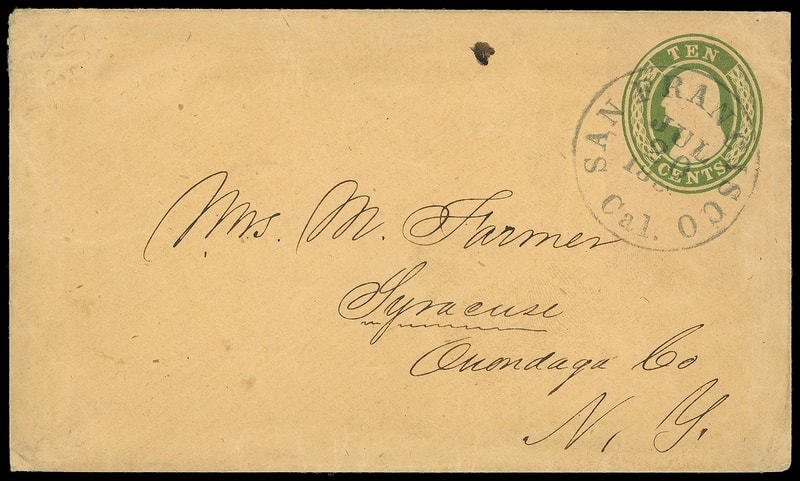 TEN
CENTS
SAN FRANCISCO
JUL
Cal.
Mrs. M. Farmer
Syracuse
Onondaga Co
N. Y.